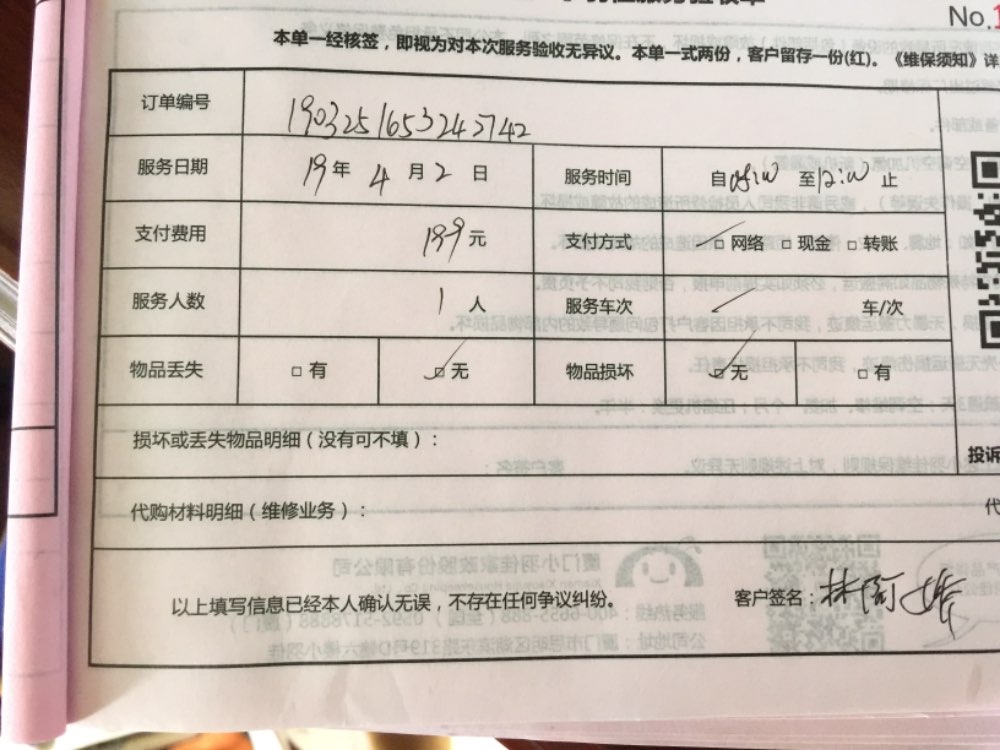 No.1
本单一经核签，即视为对本次服务验收无异议。本单一式两份，客户留存一份(红)。《维保须知》详
订单编号 1903251653242742
服务日期 19年 4 月 2 日 服务时间 自08:00 至12:00 止
支付费用 199元 支付方式 □ 网络 □ 现金 □ 转账
服务人数 1 人 服务车次 车/次
物品丢失 □ 有 □ 无 物品损坏 □ 无 □ 有
损坏或丢失物品明细（没有可不填）：
投诉
代购材料明细（维修业务）：
代
以上填写信息已经本人确认无误，不存在任何争议纠纷。 客户签名：林阿